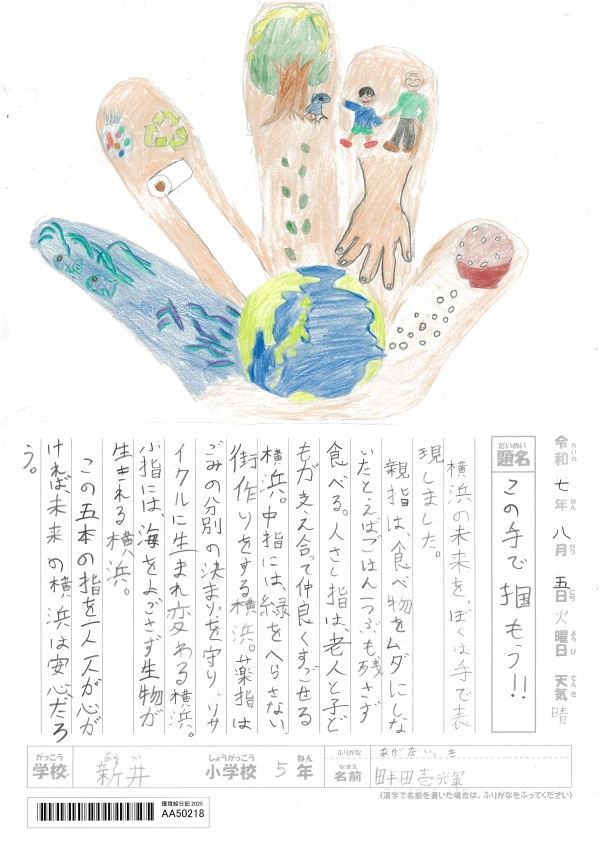 令和七年八月五日火曜日 天気晴
れいわ ねん がつ にち ようび てんき
だいめい
題名 この手で掴もう!!
横浜の未来を、ぼくは手で表
現しました。
親指は、食べ物をムダにしな
いたとえばごはん一つぶも残さず
食べる。人さし指は、老人と子ど
もが支え合って仲良くすごせる
横浜。中指には、緑をへらさない
街作りをする横浜。薬指は
ごみの分別の決まりを守り、リサ
イクルに生まれ変わる横浜。
小指には、海をよごさず生物が
生きれる横浜。
この五本の指を一人一人が心が
ければ、未来の横浜は安心だろ
う。
がっこう しょうがっこう ねん
学校 新井 小学校 5年
あらい
ふりがな あぜた いっき
なまえ
名前 畔田壱輝
(漢字で名前を書いた場合は、ふりがなをふってください)
環境絵日記 2025
AA50218